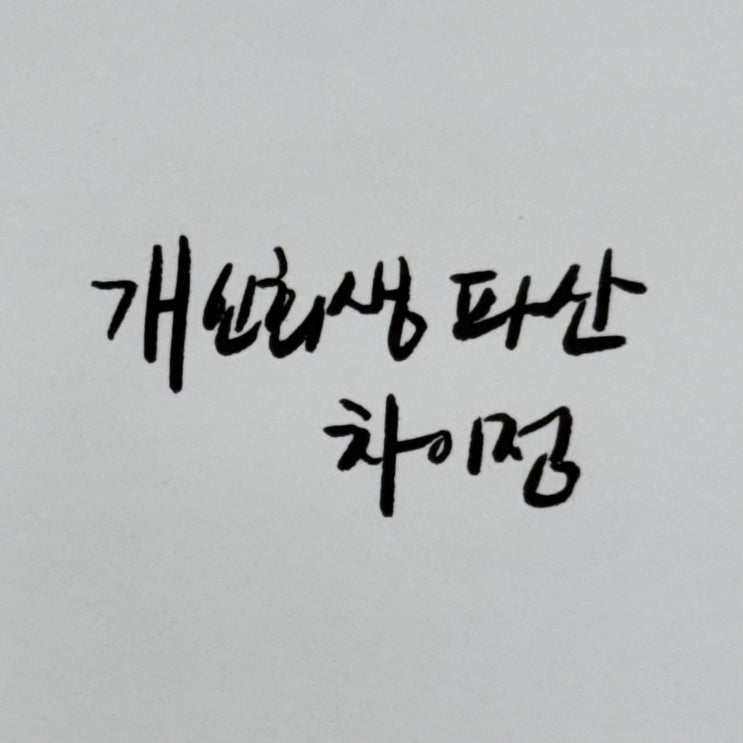 개인회생 파산
차이정